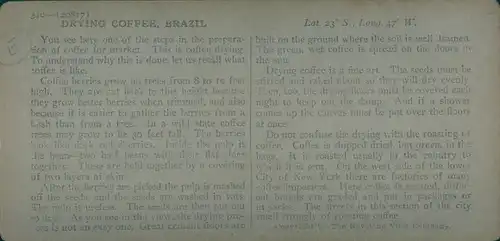 310—(20817)
DRYING COFFEE, BRAZIL
Lat. 23° S.; Long. 47° W.
You see here one of the steps in the preparation of coffee for market. This is coffee drying.
To understand why this is done, let us recall what
coffee is like.
Coffee berries grow on trees from 8 to 10 feet
high. They are cut back to this height because
they grow better berries when trimmed, and also
because it is easier to gather the berries from a
bush than from a tree. In a wild state coffee
trees may grow to be 30 feet tall. The berries
look like dark red cherries. Inside the pulp is
the
two
beans with their flat sides
together. These are held together by a covering
of two layers of skin.
After the berries are picked the pulp is mashed
off the seeds and the seeds are washed in vats.
The pulp is useless. The seeds are then put out
to dry. As you see in the view the drying process is not an easy one. Great cement floors are
built on the ground where the soil is well
The green, wet coffee is spread on the floors in
the sun.
Drying coffee is a fine art. The seeds must be
stirred and raked about so they will dry evenly.
Then, too, the drying floors must be covered each
night to keep out the damp. And if a shower
comes up the covers must be put over the floors
at once.
Do not confuse the drying with the roasting of
coffee. Coffee is shipped dried, but green, in
bags. It is roasted usually in the country to
which it is sent. On the west side of the lower
City of New York there are factories of many
coffee importers. Here coffee is roasted,
beans are graded and put in packages or
in sacks. The streets in this section of the city
smell strongly of roasting coffee.
Copyright by The Keystone View Company.